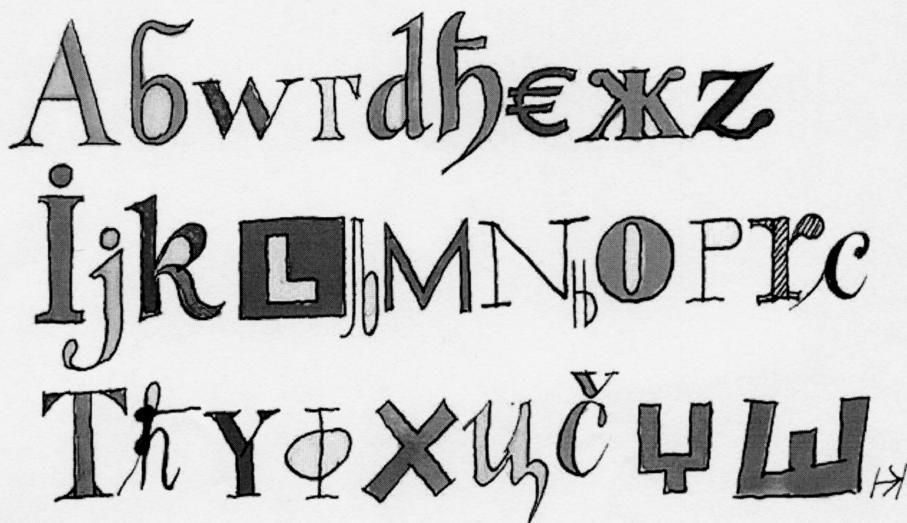 Aбwгdђ€жz
ijkLљMNњOPrc
TћYФXцčЏШ